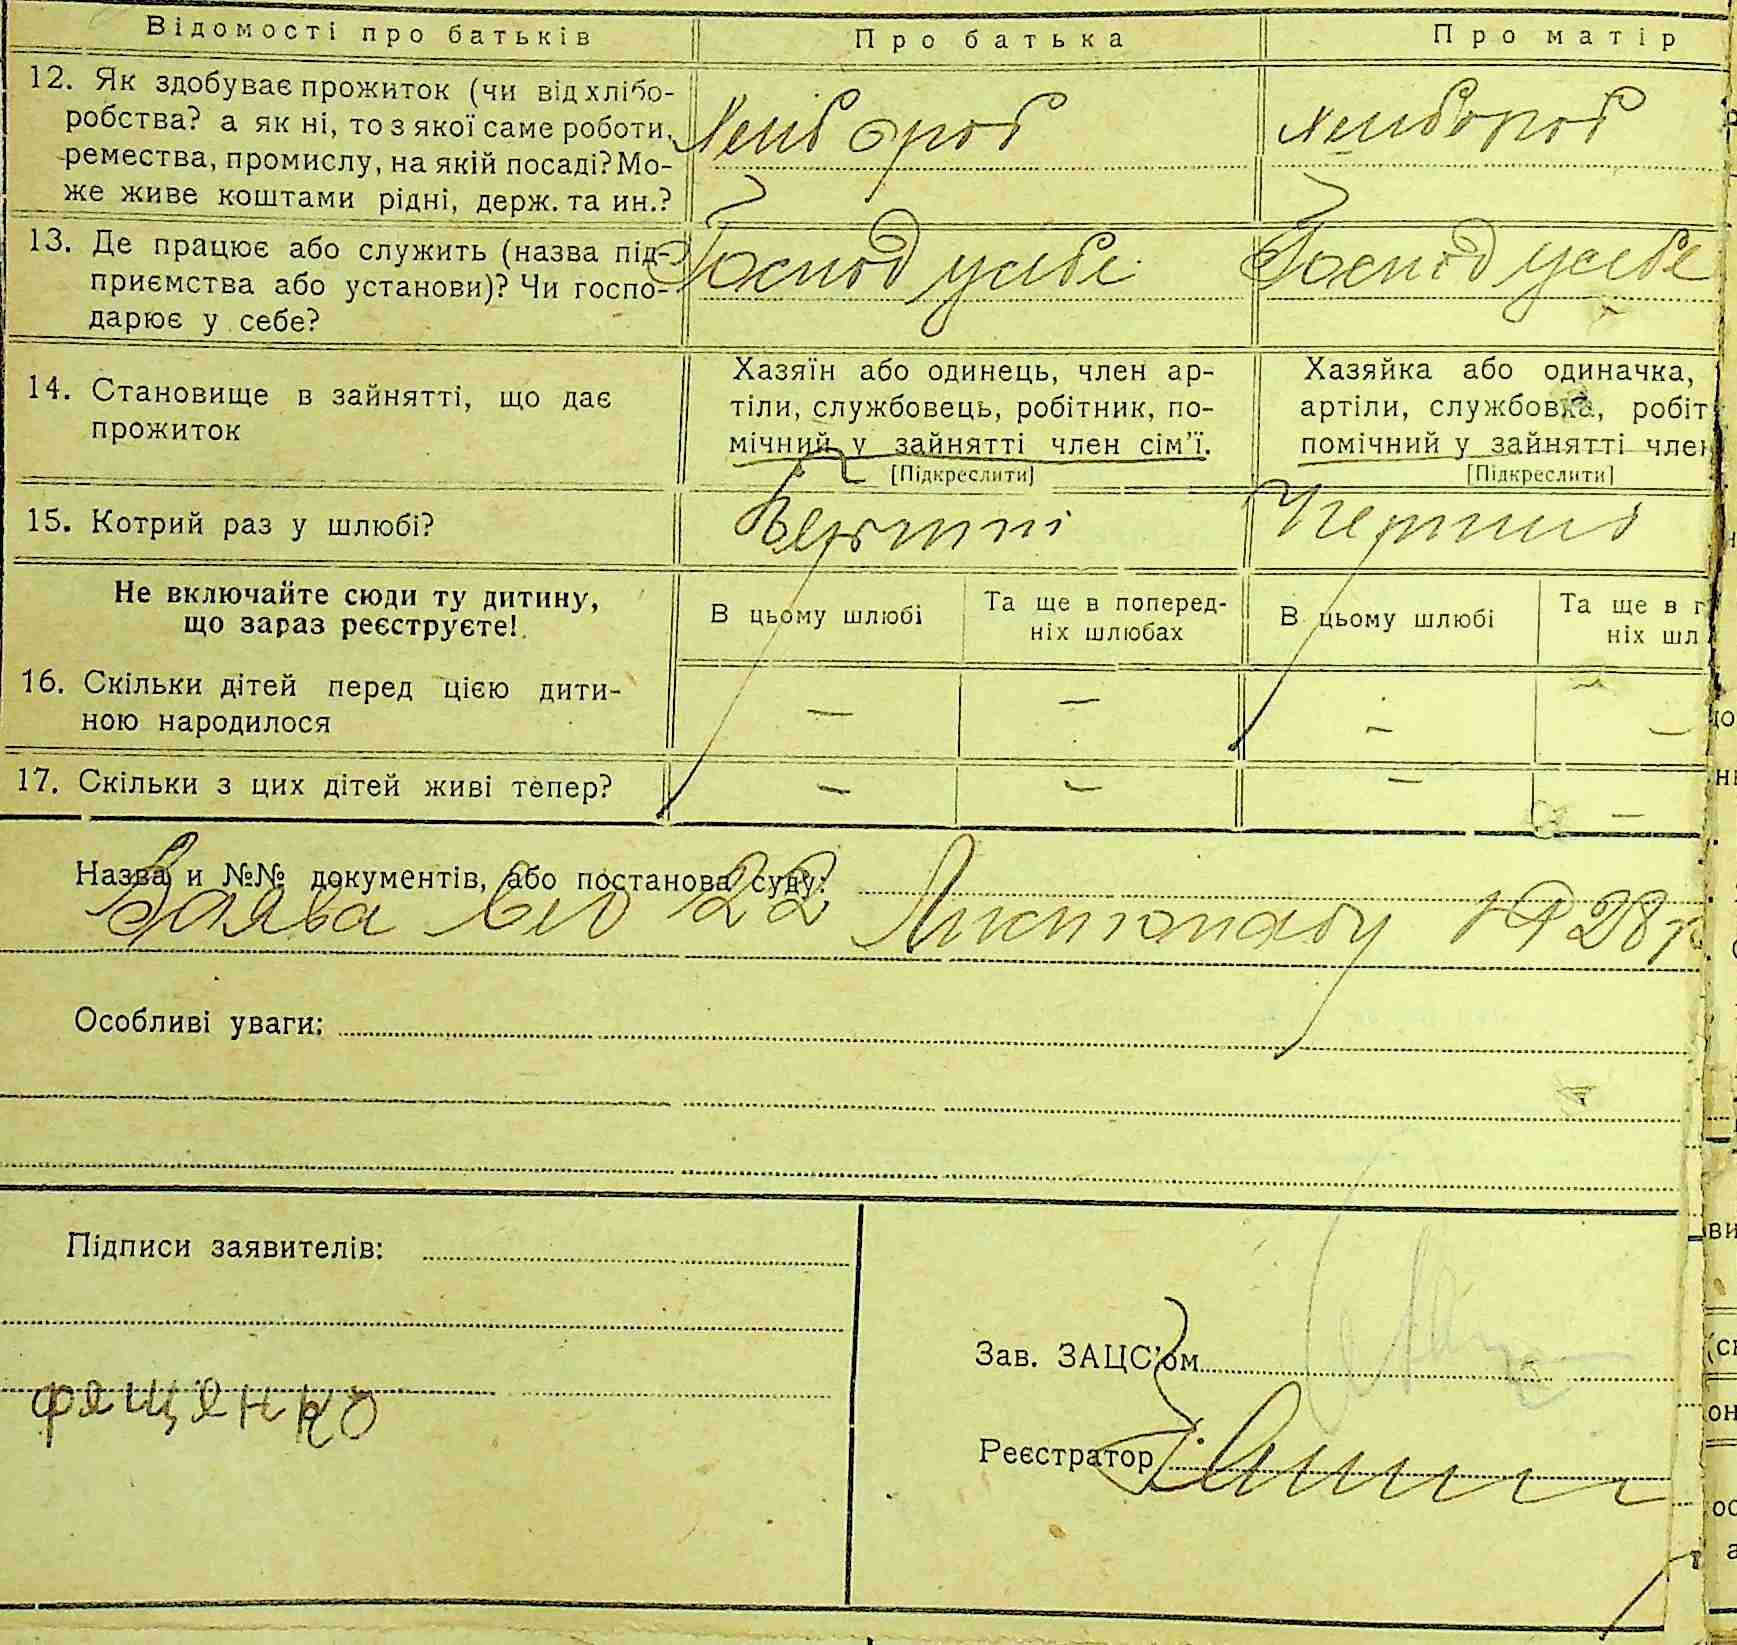 Відомості про батьків Про батька Про матір
12. Як здобуває прожиток (чи від хлібо-
робства? а як ні, то з якої саме роботи,
ремества, промислу, на якій посаді? Мо-
же живе коштами рідні, держ. та ин.?
Хлибороб Хлибороб
13. Де працює або служить (назва під-
приємства або установи)? Чи госпо-
дарює у себе?
Господ у себе Господ у себе
14. Становище в зайнятті, що дає
прожиток
Хазяїн або одинець, член ар-
тіли, службовець, робітник, по-
мічний у зайнятті член сім'ї.
[Підкреслити]
Хазяйка або одиначка,
артіли, службовка, робіт
помічний у зайнятті член
[Підкреслити]
15. Котрий раз у шлюбі?
Не включайте сюди ту дитину,
що зараз реєструєте!
В цьому шлюбі
Та ще в поперед-
ніх шлюбах
В цьому шлюбі
Та ще в п
ніх шл
16. Скільки дітей перед цією дити-
ною народилося
— — — —
17. Скільки з цих дітей живі тепер?
— — — —
Назва и №№ документів, або постанова суду:
Заява від 22 Листопаду 1928 р
Особливі уваги:
Підписи заявителів:
Фященко
Зав. ЗАЦС'ом
Реєстратор